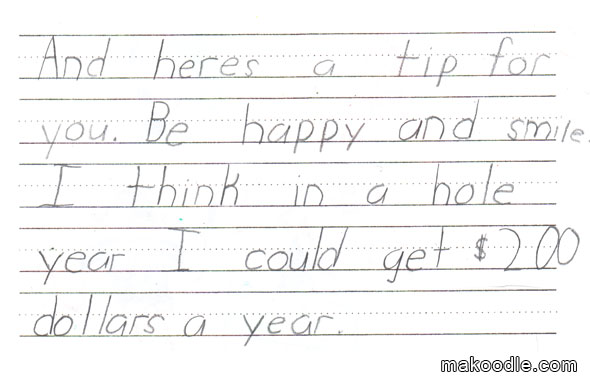 And heres a tip for
you. Be happy and smile.
I think in a hole
year I could get $200
dollars a year.
makoodle.com